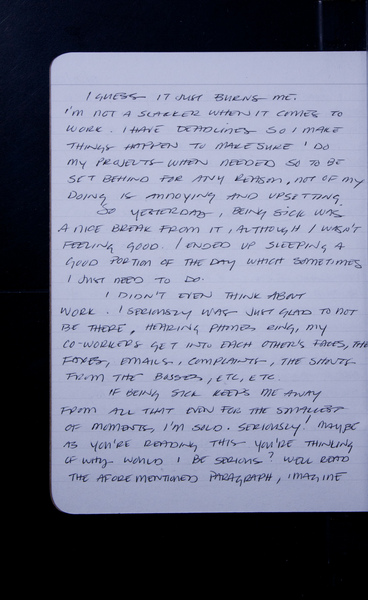 I GUESS IT JUST BURNS ME.
I'M NOT A SLACKER WHEN IT COMES TO
WORK. I HAVE DEADLINES SO I MAKE
THINGS HAPPEN TO MAKE SURE I DO
MY PROJECTS WHEN NEEDED SO TO BE
SET BEHIND FOR ANY REASON, NOT OF MY
DOING IS ANNOYING AND UPSETTING.
SO YESTERDAY, BEING SICK WAS
A NICE BREAK FROM IT, ALTHOUGH I WASN'T
FEELING GOOD. I ENDED UP SLEEPING A
GOOD PORTION OF THE DAY WHICH SOMETIMES
I JUST NEED TO DO.
I DIDN'T EVEN THINK ABOUT
WORK. I SERIOUSLY WAS JUST GLAD TO NOT
BE THERE, HEARING PHONES RING, MY
CO-WORKERS GET INTO EACH OTHER'S FACES, THE
FAXES, EMAILS, COMPLAINTS, THE SHOUTS
FROM THE BOSSES, ETC, ETC.
IF BEING SICK KEEPS ME AWAY
FROM ALL THAT EVEN FOR THE SMALLEST
OF MOMENTS, I'M SOLD. SERIOUSLY! MAYBE
AS YOU'RE READING THIS YOU'RE THINKING
OF WHY WOULD I BE SERIOUS? WELL READ
THE AFOREMENTIONED PARAGRAPH, IMAGINE